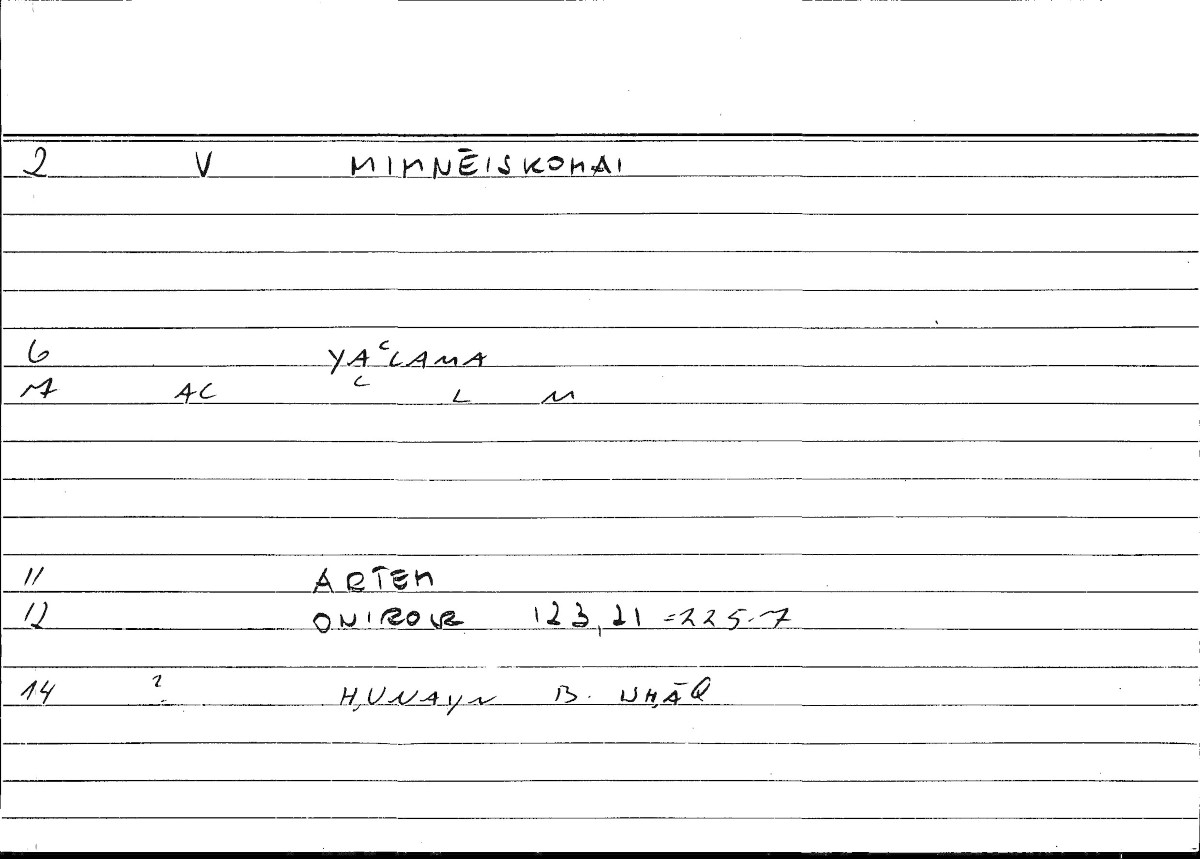 2 V MIMNĒISKOMAI
6 YAʿLAMA
7 AC ʿ L M
11 ARTEM
12 ONIROKR 123,21 =225.7
14 ? ḤUNAYN B. ISḤĀQ